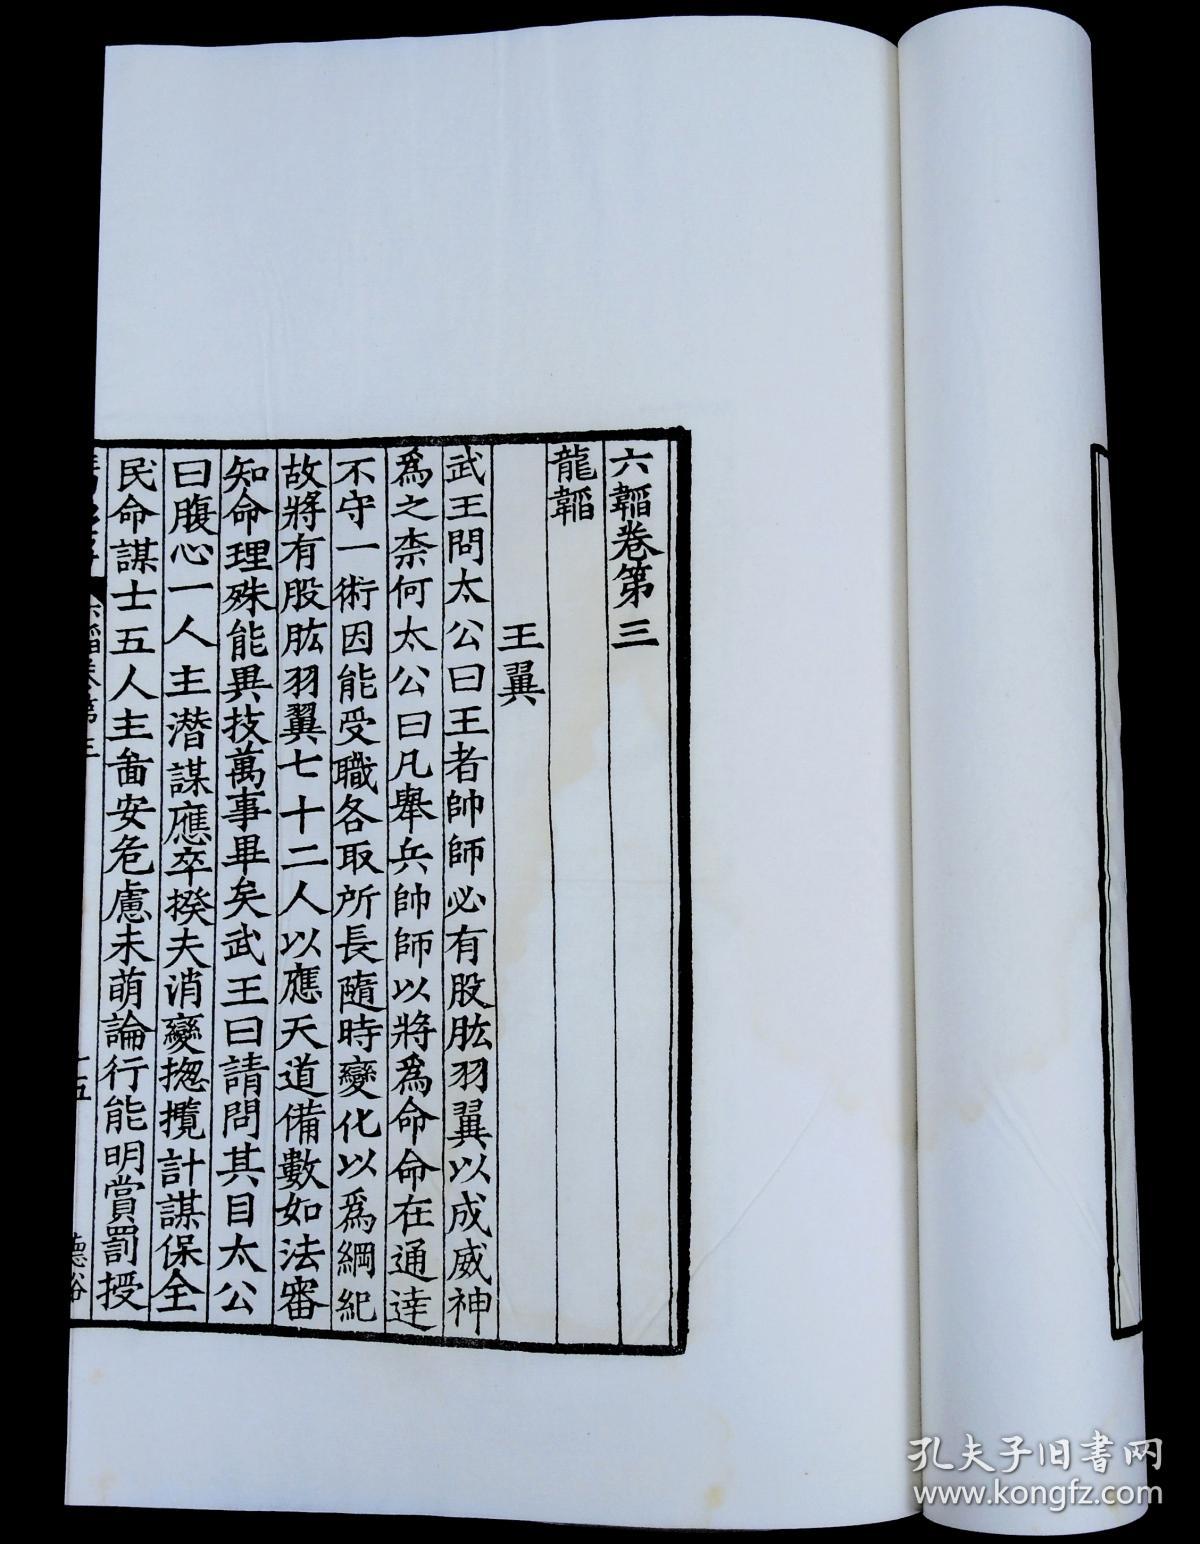 六韜卷第三
龍韜
王翼
武王問太公曰王者帥師必有股肱羽翼以成威神
爲之柰何太公曰凡舉兵帥師以將爲命命在通達
不守一術因能受職各取所長隨時變化以爲綱紀
故將有股肱羽翼七十二人以應天道備數如法審
知命理殊能異技萬事畢矣武王曰請問其目太公
曰腹心一人主潛謀應卒揆天消變揔攬計謀保全
民命謀士五人主啚安危慮未萌論行能明賞罰授
六韜卷第三
十五
德裕
孔夫子旧书网
www.kongfz.com